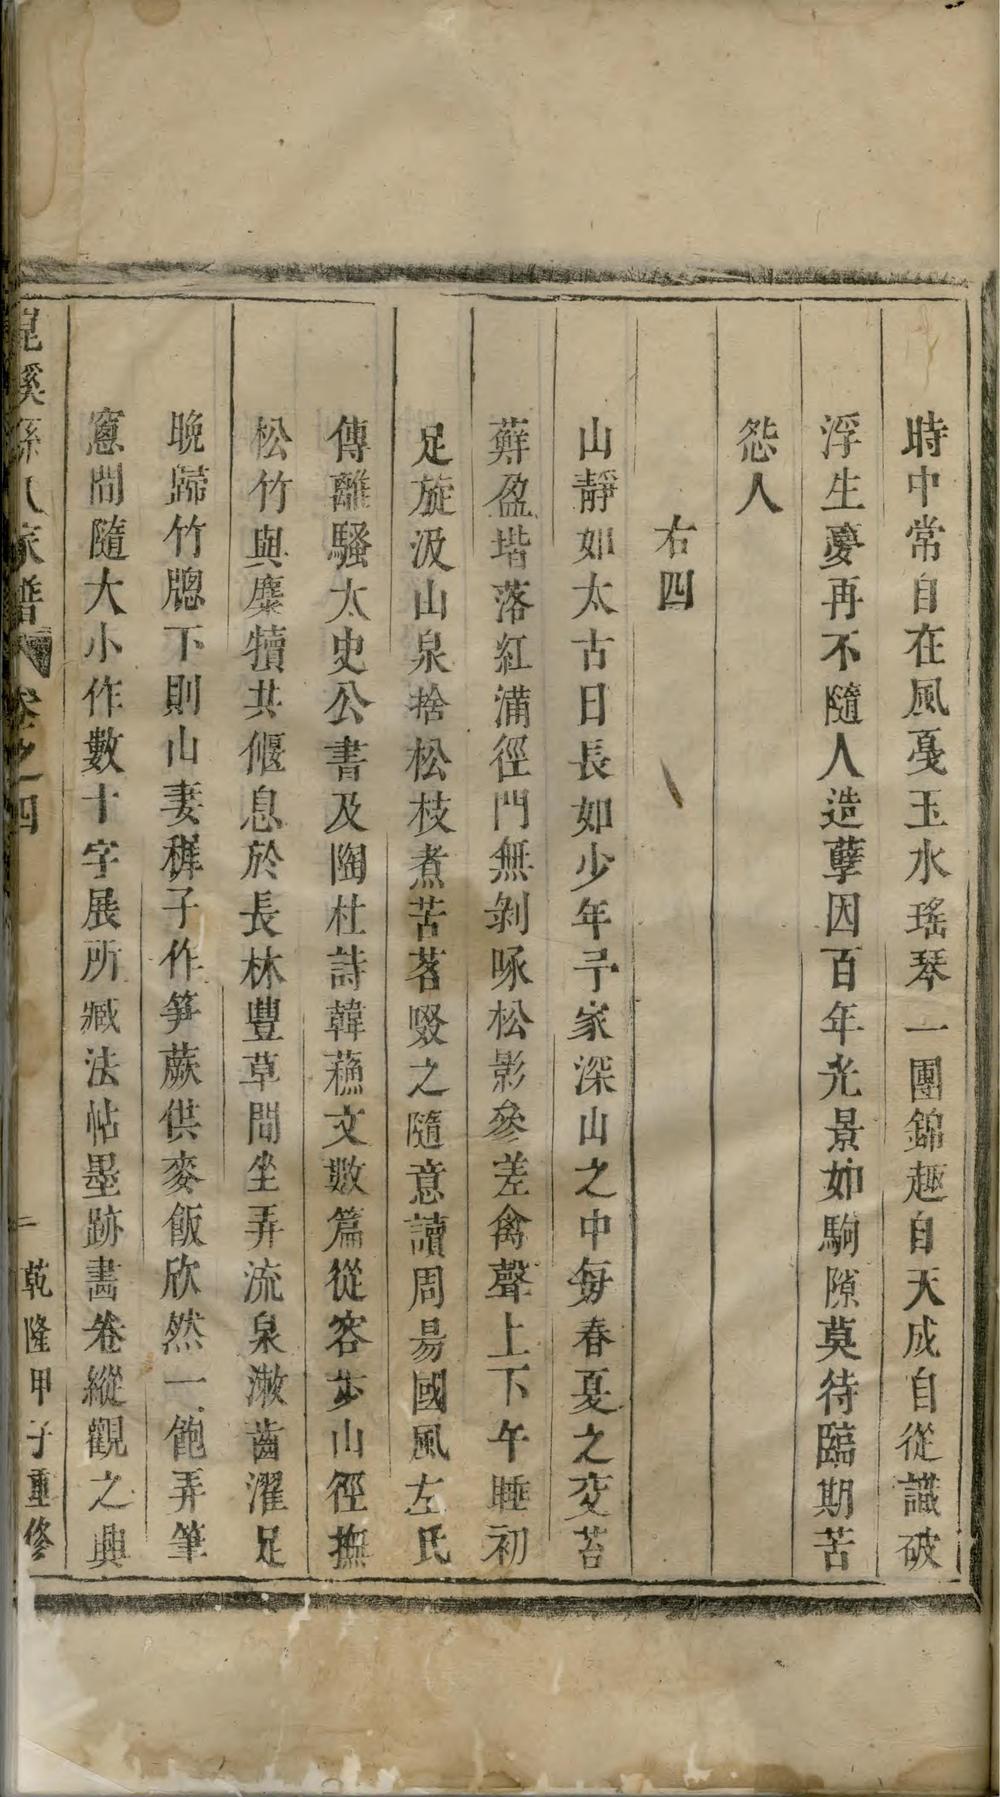 時中常自在風戞玉水瑤琴一團錦趣自天成自從識破
浮生夢再不隨人造孽因百年光景如駒隙莫待臨期苦
怨人
右四
山靜如太古日長如少年予家深山之中每春夏之交苔
蘚盈堦落紅滿徑門無剝啄松影參差禽聲上下午睡初
足旋汲山泉拾松枝煮苦茗啜之隨意讀周易國風左氏
傳離騷太史公書及陶杜詩韓蘓文數篇從容步山徑撫
松竹與麋犢共偃息於長林豐草間坐弄流泉漱齒濯足
晚歸竹牕下則山妻穉子作笋蕨供麥飯欣然一飽弄筆
窻間隨大小作數十字展所藏法帖墨跡畵卷縱觀之興
溪孫氏家譜 卷之四 二 乾隆甲子重修